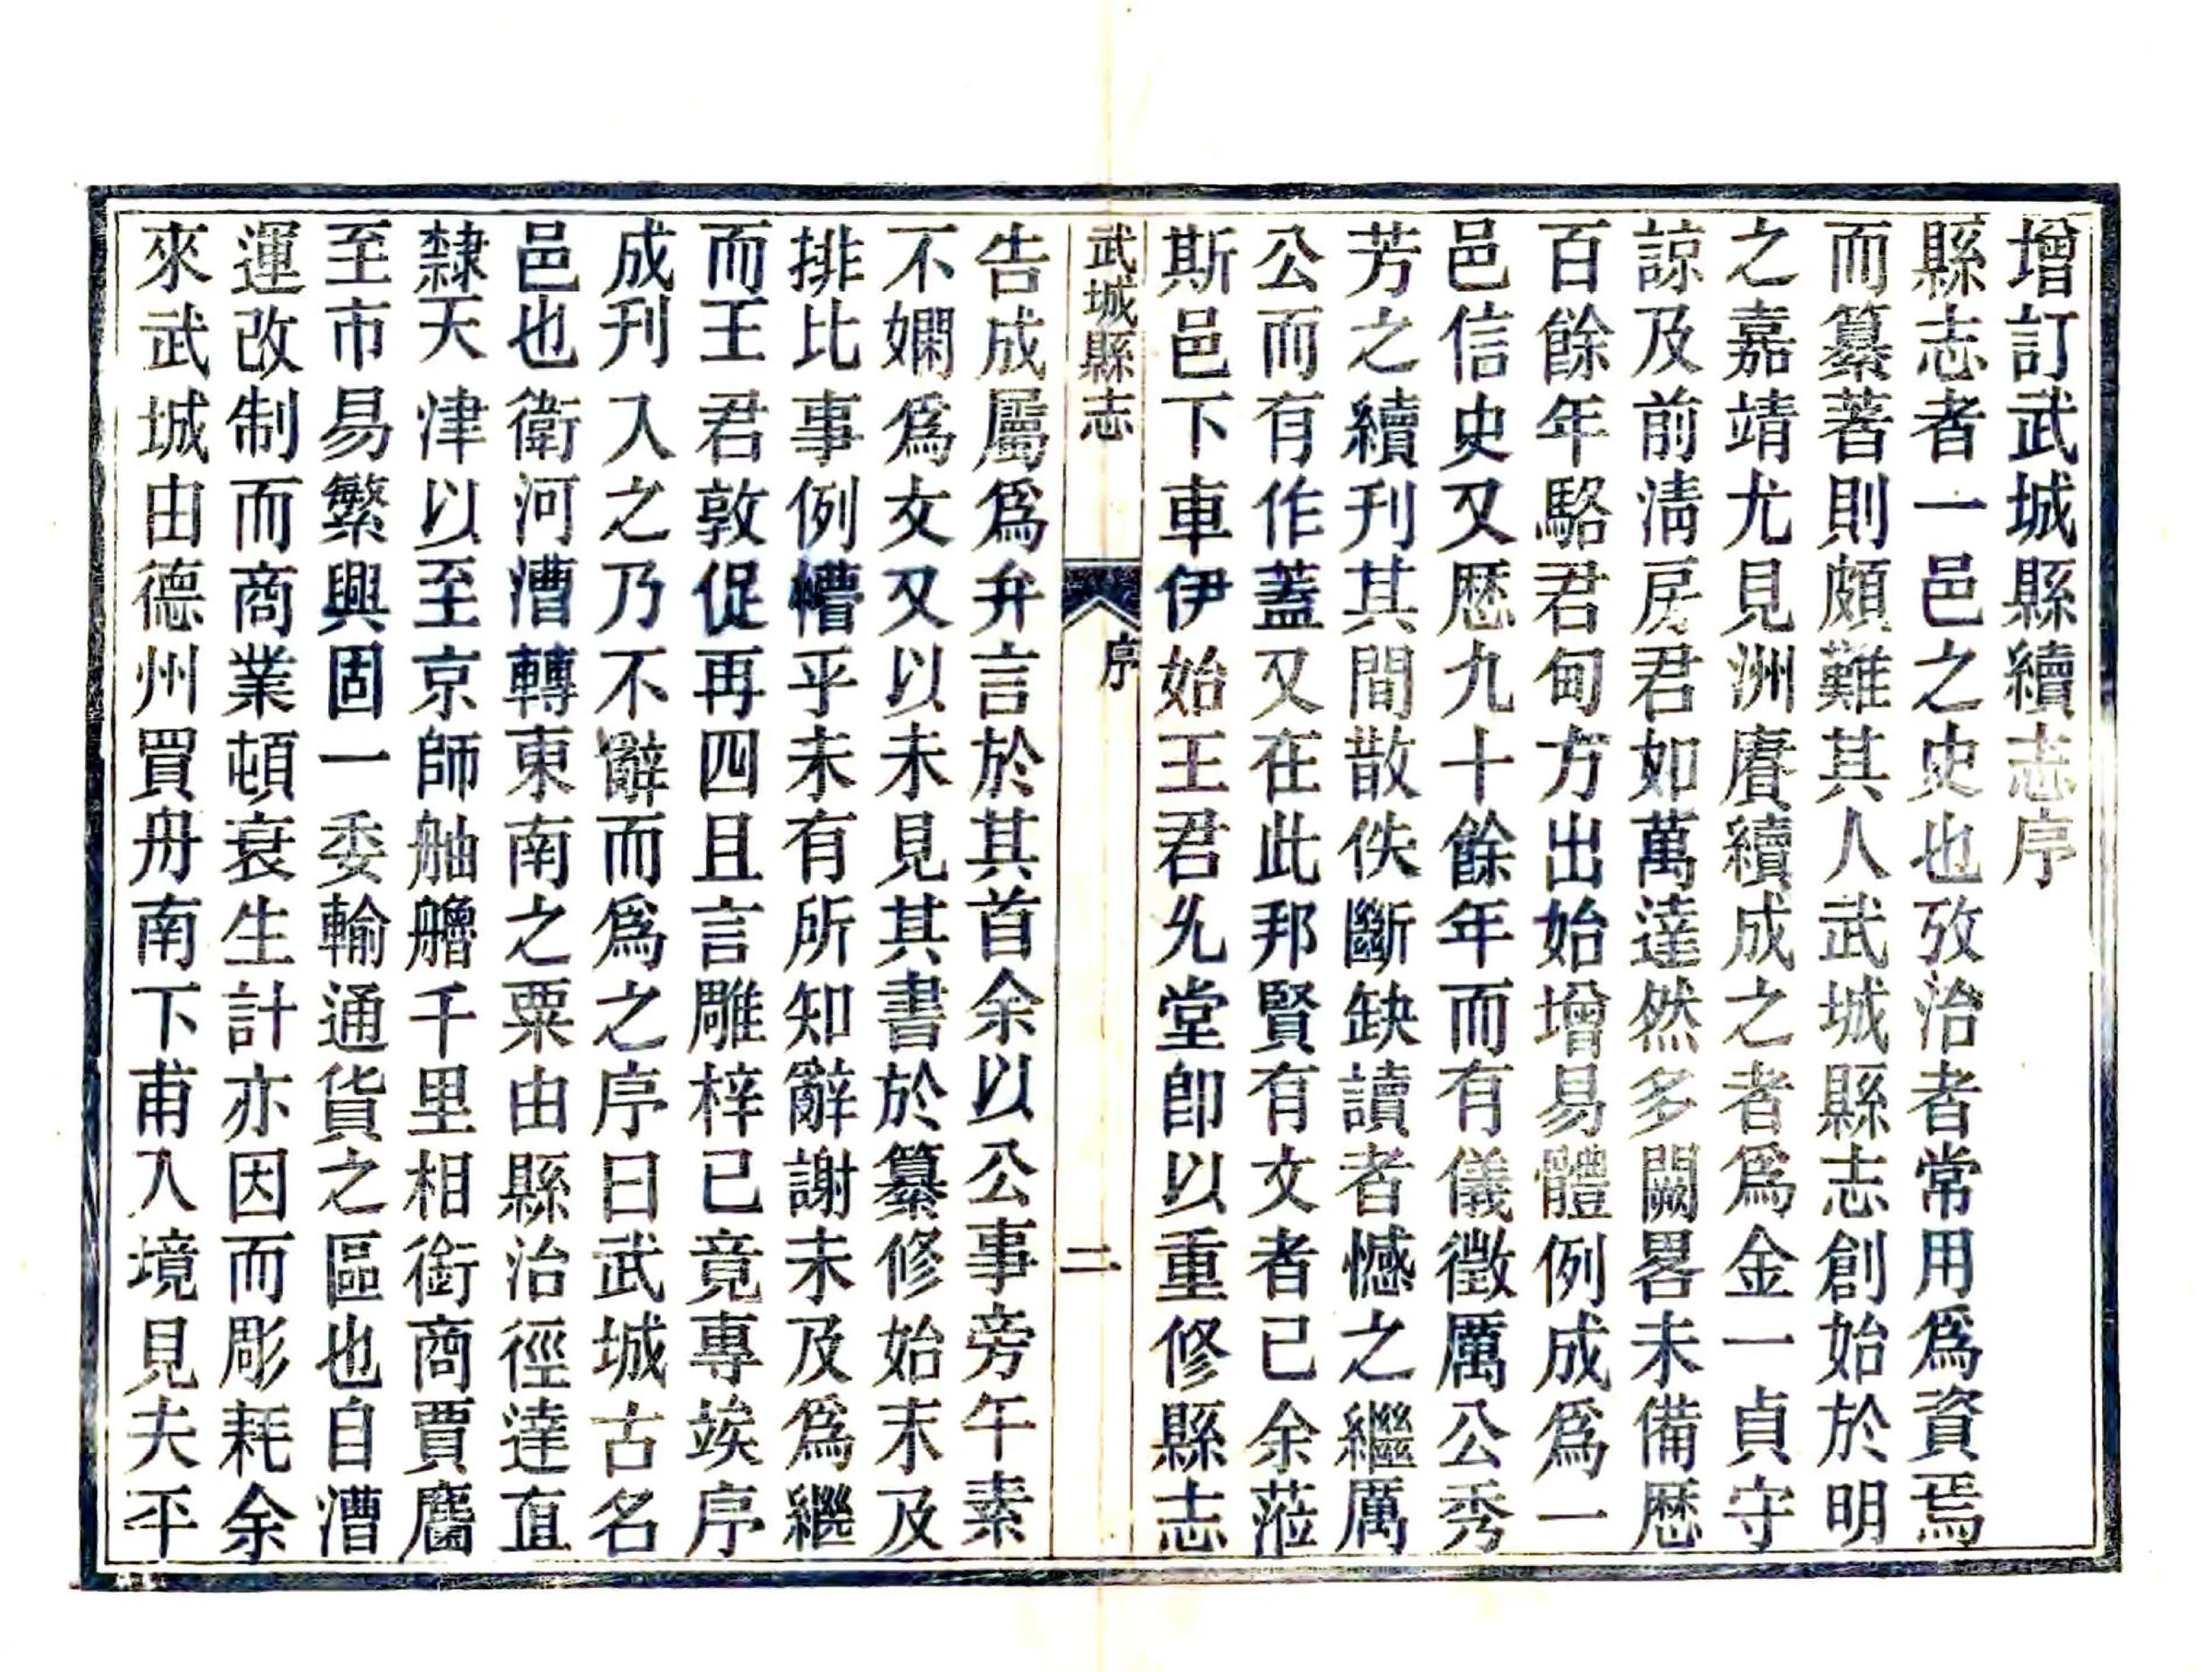 增訂武城縣續志序
縣志者一邑之史也攷治者常用爲資焉
而纂著則頗難其人武城縣志創始於明
之嘉靖尤見洲賡續成之者爲金一貞守
諒及前淸房君如萬達然多闕畧未備歷
百餘年駱君甸方出始增易體例成爲一
邑信史又歷九十餘年而有儀徵厲公秀
芳之續刊其間散佚斷缺讀者憾之繼厲
公而有作蓋又在此邦賢有文者已余蒞
斯邑下車伊始王君允堂卽以重修縣志
武城縣志
序
二
告成屬爲弁言於其首余以公事旁午素
不嫻爲文又以未見其書於纂修始末及
排比事例懵乎未有所知辭謝未及爲繼
而王君敦促再四且言雕梓已竟專竢序
成刊入之乃不辭而爲之序曰武城古名
邑也衛河漕轉東南之粟由縣治徑達直
隸天津以至京師舳艫千里相銜商賈麕
至市易繁興固一委輸通貨之區也自漕
運改制而商業頓衰生計亦因而彫耗余
來武城由德州買舟南下甫入境見夫平